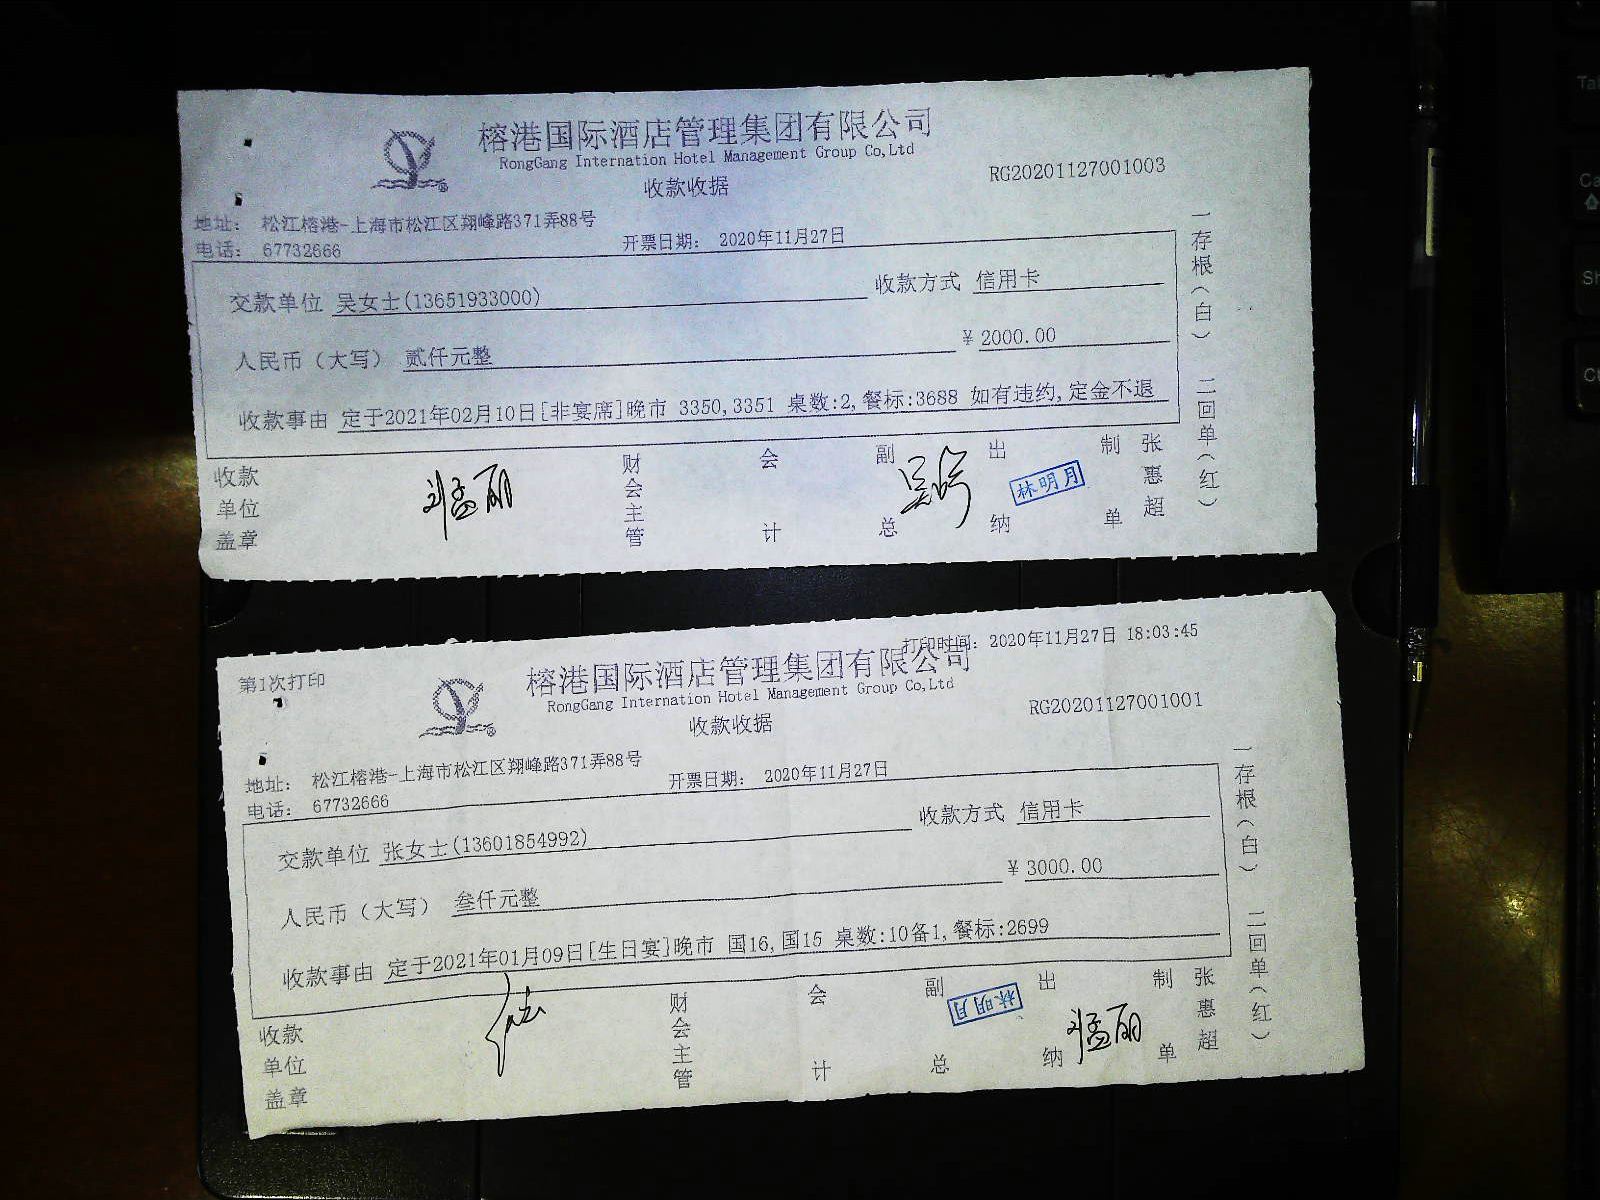 榕港国际酒店管理集团有限公司
RongGang Internation Hotel Management Group Co,Ltd
收款收据
RG20201127001003
地址： 松江榕港-上海市松江区翔峰路371弄88号
电话： 67732666
开票日期： 2020年11月27日
交款单位 吴女士(13651933000)
收款方式 信用卡
人民币（大写） 贰仟元整
¥ 2000.00
收款事由 定于2021年02月10日[非宴席]晚市 3350,3351 桌数:2,餐标:3688 如有违约,定金不退
收款单位盖章
刘孟丽
财会主管
会计
副总
出纳
林明月
制单
张惠超
一存根（白） 二回单（红）
第1次打印
打印时间： 2020年11月27日 18:03:45
榕港国际酒店管理集团有限公司
RongGang Internation Hotel Management Group Co,Ltd
收款收据
RG20201127001001
地址： 松江榕港-上海市松江区翔峰路371弄88号
电话： 67732666
开票日期： 2020年11月27日
交款单位 张女士(13601854992)
收款方式 信用卡
人民币（大写） 叁仟元整
¥ 3000.00
收款事由 定于2021年01月09日[生日宴]晚市 国16,国15 桌数:10备1,餐标:2699
收款单位盖章
财会主管
会计
副总
林明月
出纳
刘孟丽
制单
张惠超
一存根（白） 二回单（红）
Ta
Ca
Sh
Ct